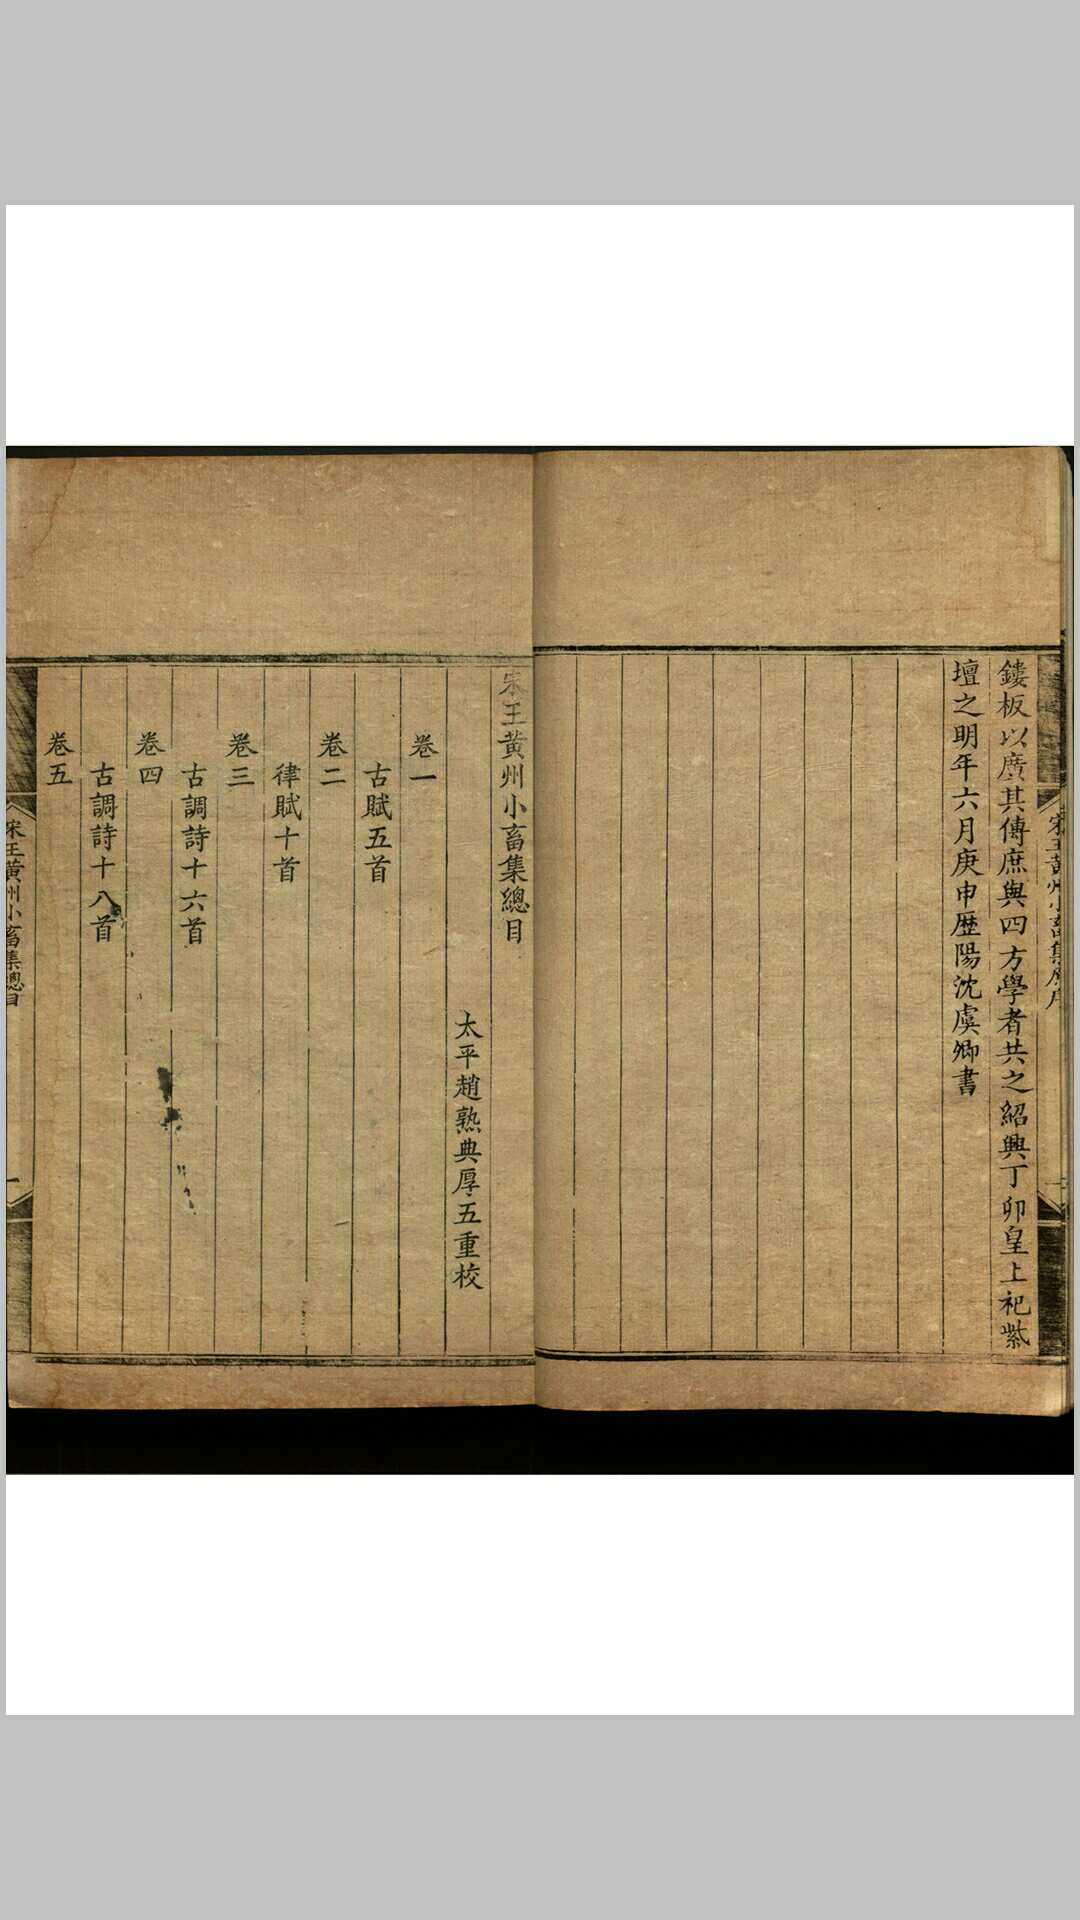 鏤板以廣其傳庶與四方學者共之紹興丁卯皇上祀紫
壇之明年六月庚申歷陽沈虞卿書
宋王黃州小畜集總目
太平趙熟典厚五重校
卷一
古賦五首
卷二
律賦十首
卷三
古調詩十六首
卷四
古調詩十八首
卷五
宋王黃州小畜集總目
一